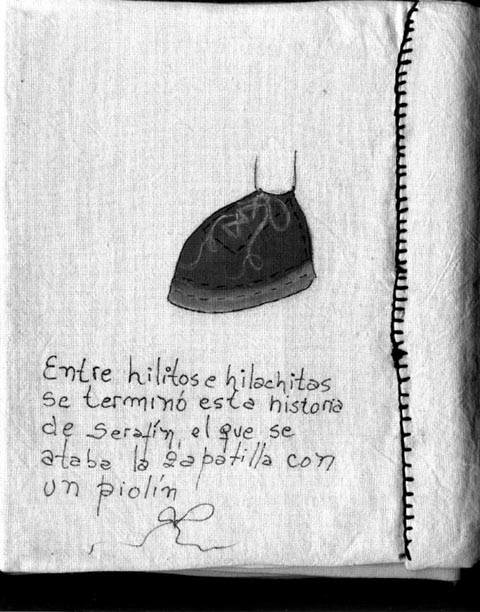 Entre hilitos e hilachitas
se terminó esta historia
de Serafín, el que se
ataba la zapatilla con
un piolín